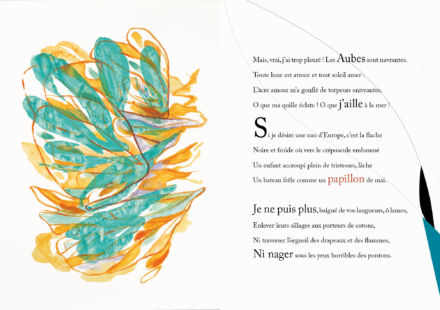 Mais, vrai, j'ai trop pleuré ! Les Aubes sont navrantes.
Toute lune est atroce et tout soleil amer :
L'âcre amour m'a gonflé de torpeurs enivrantes.
O que ma quille éclate ! O que j'aille à la mer !
Si je désire une eau d'Europe, c'est la flache
Noire et froide où vers le crépuscule embaumé
Un enfant accroupi plein de tristesses, lâche
Un bateau frêle comme un papillon de mai.
Je ne puis plus, baigné de vos langueurs, ô lames,
Enlever leurs sillages aux porteurs de cotons,
Ni traverser l'orgueil des drapeaux et des flammes,
Ni nager sous les yeux horribles des pontons.